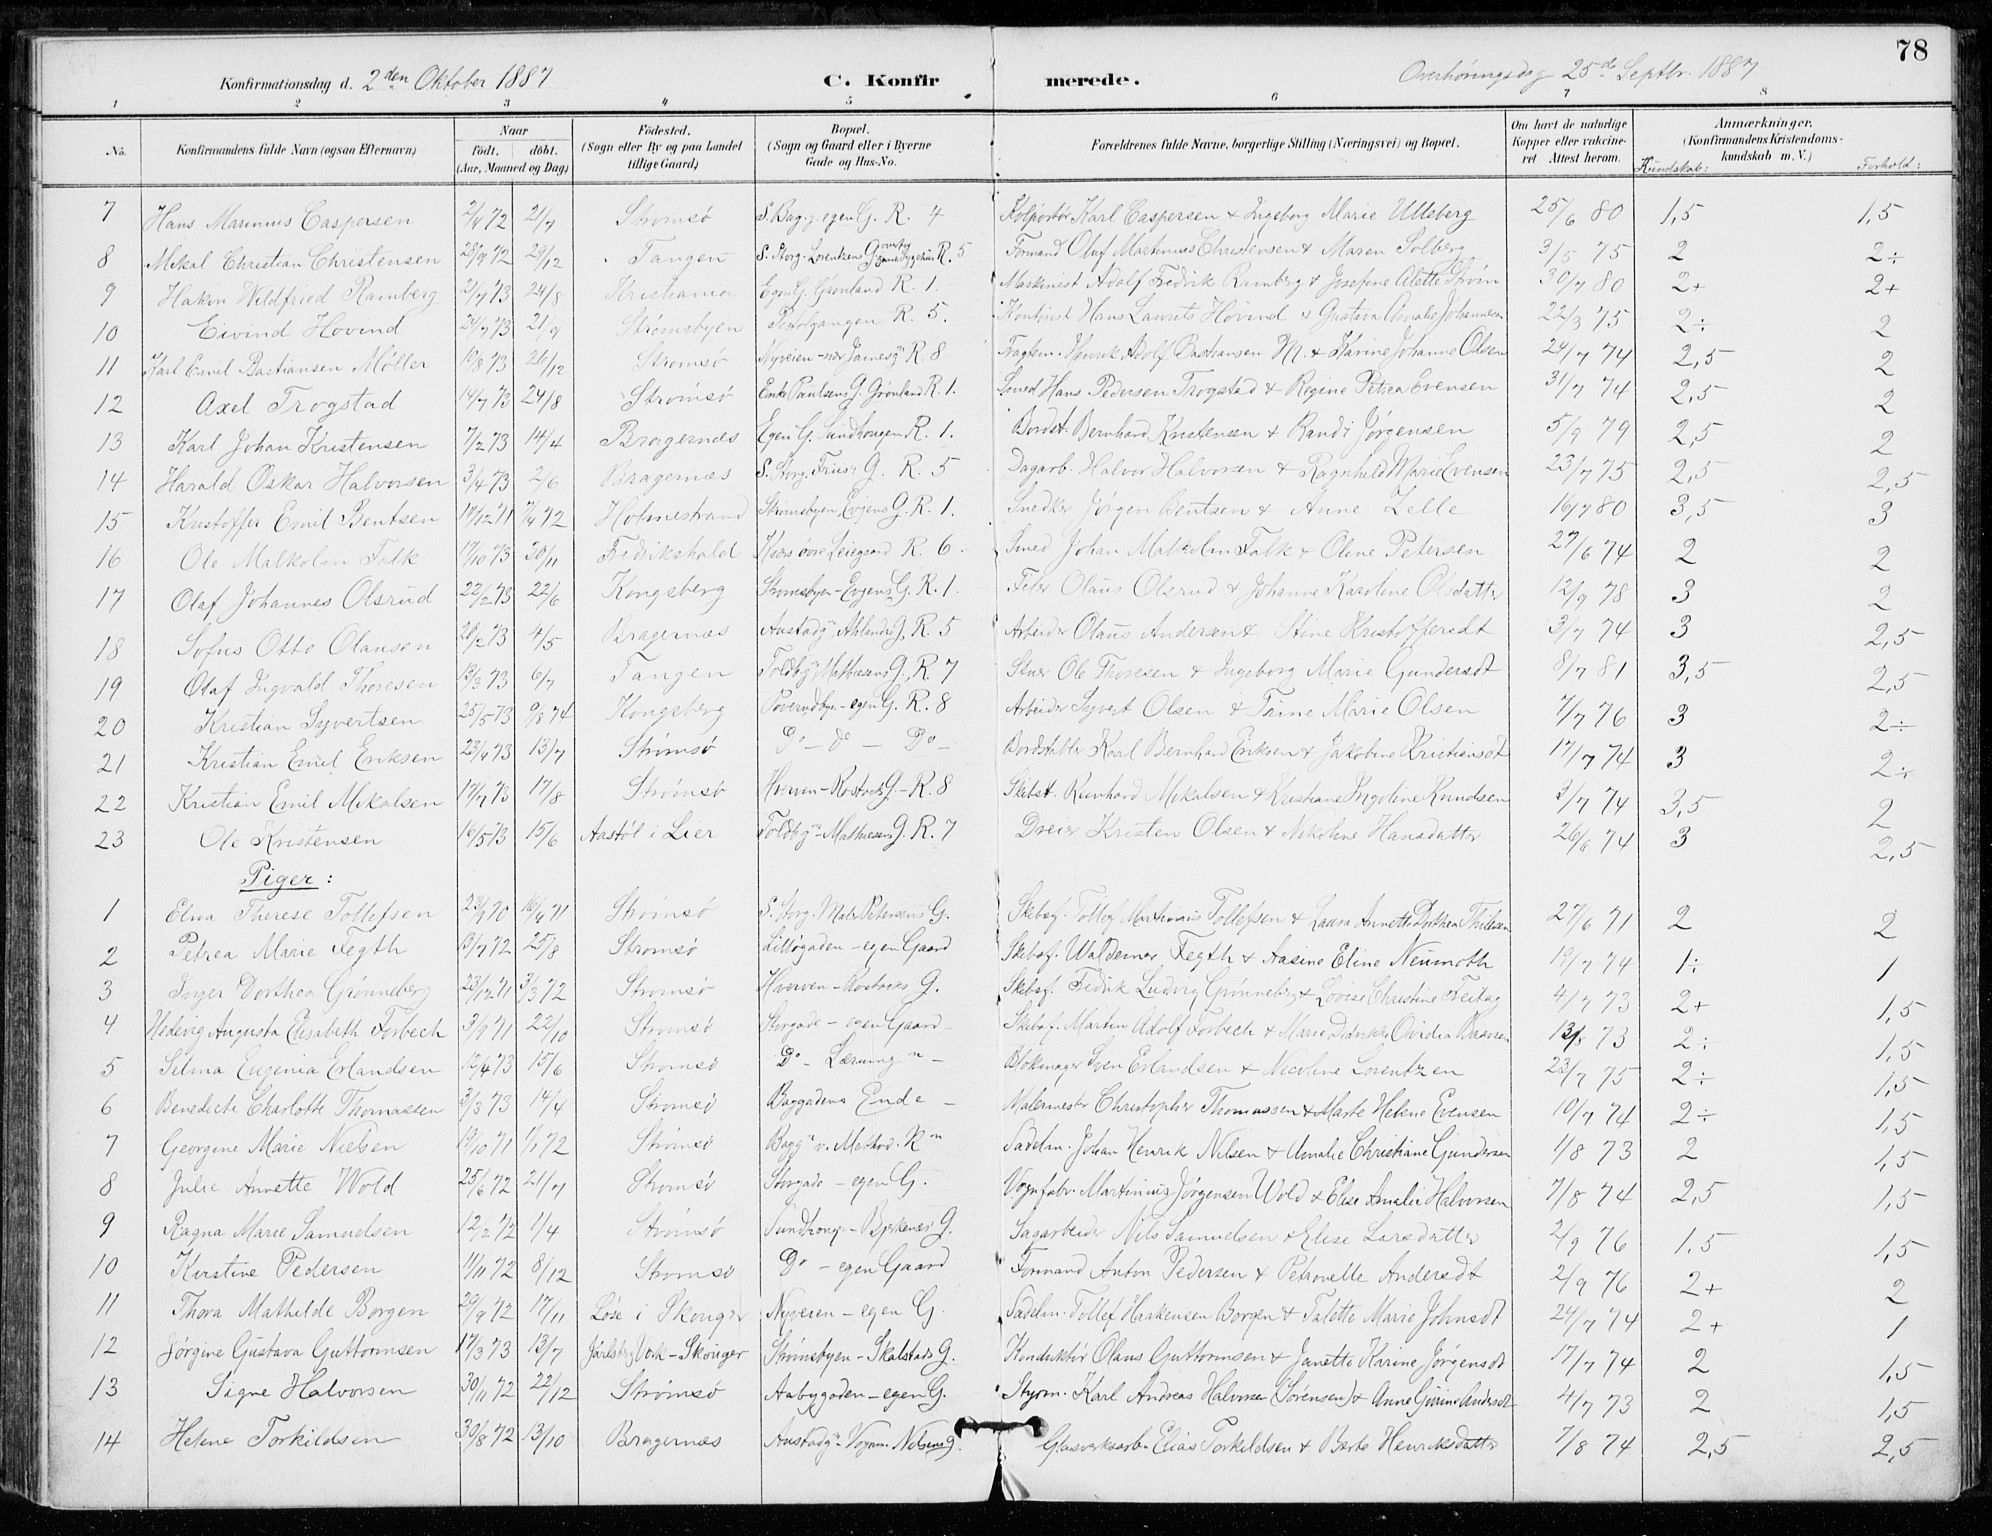 78
Konfirmationsdag d. 2den Oktober 1887 C. Konfirmerede. Overhøringsdag 25de Septbr. 1887
1 2 3 4 5 6 7 8
No. Konfirmandens fulde Navn (ogsaa Efternavn) Naar født. døbt. (Aar, Maaned og Dag) Fødested. (Sogn eller By og paa Landet tillige Gaard) Bopæl. (Sogn og Gaard eller i Byerne Gade og Hus-No. Forældrenes fulde Navne, borgerlige Stilling (Næringsvei) og Bopæl. Om havt de naturlige Kopper eller vaccineret Attest herom. Anmærkninger. (Konfirmandens Kristendomskundskab m. V.) Kundskab: Forhold:
7 Hans Marinius Caspersen 2/4 72 21/7 Strømsø S. Bagg. egen G. R. 4 Kolportør Karl Caspersen & Ingeborg Marie Ulleberg 25/6 80 1,5 1,5
8 Mikal Christian Christensen 28/9 72 29/12 Tangen S. Storg. Lorentzens G. R. 5 Formand Oluf Martinius Christensen & Maren Solberg 3/5 75 2 2÷
9 Hakon Vildfried Ramberg 2/7 73 24/8 Kristiania Egen G. Grønland R. 1. Maskinist Adolf Fredrik Ramberg & Josefine Alette Strøm 30/7 80 2+ 2+
10 Eivind Hovind 24/7 73 21/9 Strømsbyen R. 5. Kontorist Hans Laurits Hovind & Gustava Amalie Johannesen 22/3 75 2÷ 2
11 Karl Emil Bastiansen Møller 10/8 73 26/12 Strømsø Nyveien R. 8 Fragtem. Henrik Adolf Bastiansen M. & Karine Johanne Olsen 24/7 74 2,5 2
12 Axel Trogstad 14/7 73 24/8 Strømsø Enke Paulsens G. Grønland R. 1. Smed Hans Pedersen Trogstad & Regine Petrea Evensen 31/7 74 2,5 2
13 Karl Johan Kristensen 7/2 73 14/4 Bragernæs Egen G. Sundhaugen R. 1. Bordst. Bernhard Kristensen & Randi Jørgensen 5/9 79 2,5 2
14 Harald Oskar Halvorsen 3/4 73 2/6 Bragernæs S. Storg. Friis G. R. 5 Dagarb. Halvor Halvorsen & Ragnhild Marie Evensen 23/7 75 2,5 2,5
15 Kristoffer Emil Bentsen 19/12 71 7/4 72 Holmestrand Strømsbyen, Evjens G. R. 1. Snedker Jørgen Bentsen & Anne Lelle 16/7 80 3,5 3
16 Ole Malkolm Falk 17/10 73 20/11 Fredrikshald R. 6. Smed Johan Malkolm Falk & Oline Petersen 27/6 74 2 2
17 Olaf Johannes Olsrud 22/2 73 22/6 Kongsberg Strømsbyen - Evjens G. R. 1. Filer Olaus Olsrud & Johanne Karoline Olsdatter 12/9 78 3 2
18 Sofus Otto Olausen 20/2 73 4/5 Bragernæs Austadg. Ahlands G. R. 5 Arbeider Olaus Andersen & Stine Kristoffersdt 3/7 74 3 2,5
19 Olaf Ingvald Thoresen 13/3 73 6/7 Tangen Toldbg. Mathiesens G. R. 7 Stuer Ole Thoresen & Ingeborg Marie Gundersdt 8/7 81 3,5 2,5
20 Kristian Syvertsen 25/5 73 9/8 74 Kongsberg egen G. R. 8 Arbeider Syvert Olsen & Trine Marie Olsen 7/7 76 3 2÷
21 Kristian Emil Eriksen 23/4 73 13/7 Strømsø Do - do - Do - Bordstabler Karl Bernhard Eriksen & Jakobine Kristiansdt 17/7 74 3 2÷
22 Kristian Emil Mikalsen 17/7 73 17/8 Strømsø Hverven - Rostads G. - R. 8 Skibst. Reinhard Mikalsen & Kristiane Ingeline Knudsen 3/7 74 3,5 2
23 Ole Kristensen 16/5 73 15/6 Aastøl i Lier Toldbg. - Mathiesens G. R. 7 Dreier Kristen Olsen & Nikoline Hansdatter 26/6 74 3 2,5
Piger:
1 Elna Therese Tollefsen 23/9 70 16/4 71 Strømsø S. Storg. Maler Petersens G. Skibsf. Tollef Martinius Tollefsen & Laura Annette Dorthea Thilesen 27/6 71 2 2
2 Petrea Marie Fegth 13/7 72 25/8 Strømsø Lilløgaden - egen Gaard Skibsf. Waldemar Fegth & Aasine Eline Neumoth 19/7 74 1÷ 1
3 Inger Dorthea Grønneberg 23/12 71 3/3 72 Strømsø Hverven - Rostads G. Skibsf. Fredrik Ludvig Grønneberg & Lovise Christine Freitag 4/7 73 2+ 1,5
4 Hedevig Augusta Elisabeth Forbech 3/9 71 22/10 Strømsø Storgade - egen Gaard - Skibsf. Martin Adolf Forbech & Marie Didrikke Ovidia 13/8 73 2÷ 1,5
5 Selma Eugenia Erlandsen 12/4 73 15/6 Strømsø Do - Blokmager Sven Erlandsen & Nicoline Lorentzen 23/7 75 2÷ 1,5
6 Benedicte Charlotte Thomassen 3/3 73 14/4 Strømsø Baggadens Ende - Malermester Christopher Thomassen & Marte Helene Evensen 10/7 74 2÷ 1,5
7 Georgine Marie Nielsen 19/10 71 1/1 72 Strømsø Sadelm. Johan Henrik Nilsen & Amalie Christiane Gundersen 1/8 73 2 1,5
8 Julie Annette Wold 25/6 72 21/7 Strømsø Storgade - egen G. Vognfabr. Martinius Jørgensen Wold & Elise Amalie Halvorsen 7/8 74 2,5 1,5
9 Ragna Marie Samuelsen 12/2 72 1/4 Strømsø Sundhaug. - Bjerkenæs G. Sagarbeider Nils Samuelsen & Elise Larsdatter 2/9 76 1.5 1,5
10 Kirstine Pedersen 11/11 72 8/12 Strømsø Do - egen Gaard Formand Anton Pedersen & Petronelle Andersdt 2/9 76 2+ 2
11 Thora Mathilde Borgen 29/9 72 17/11 Løse i Skouger Nyveien - egen G. Sadelm. Tollef Haakensen Borgen & Talette Marie Johnsdt 24/7 74 2+ 1
12 Jørgine Gustava Guttormsen 17/3 73 13/7 Jarlsberg Verk - Skouger Strømsbyen - Skalstads G. Konduktør Olaus Guttormsen & Janette Karine Jørgensdt 17/7 74 2 1,5
13 Signe Halvorsen 30/11 72 22/12 Strømsø Aabygaden - egen G. Styrm. Karl Andreas Halvorsen (Sørensen) & Anne Gurine Andersdt 4/7 73 2 1,5
14 Helene Torkildsen 30/8 72 13/10 Bragernæs Austadg. - Vognm. Nelsens G. Glasverksarb. Elias Torkildsen & Berte Henriksdatter 7/8 74 2,5 2,5